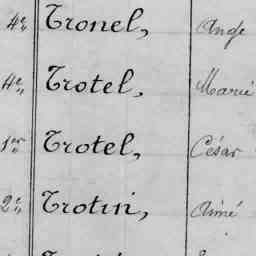 4e„ Tronel, Ange
4e„ Trotel, Marie
1er„ Trotel, César
2e„ Trotin, Aimé